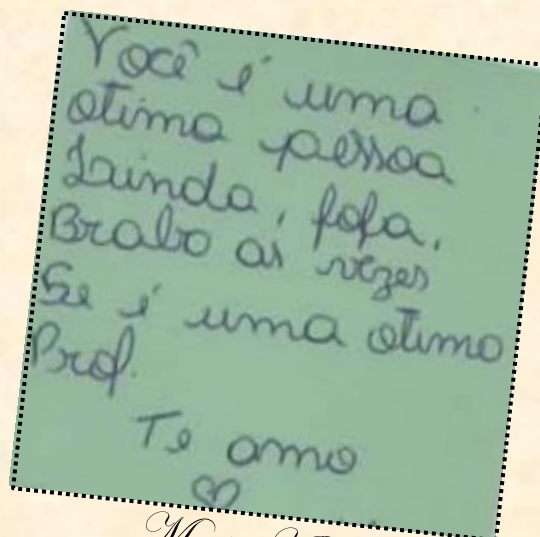 Você é uma
otima pessoa
Lainda, fofa,
Brabo as vezes
Se é uma otimo
Prof.
Te amo